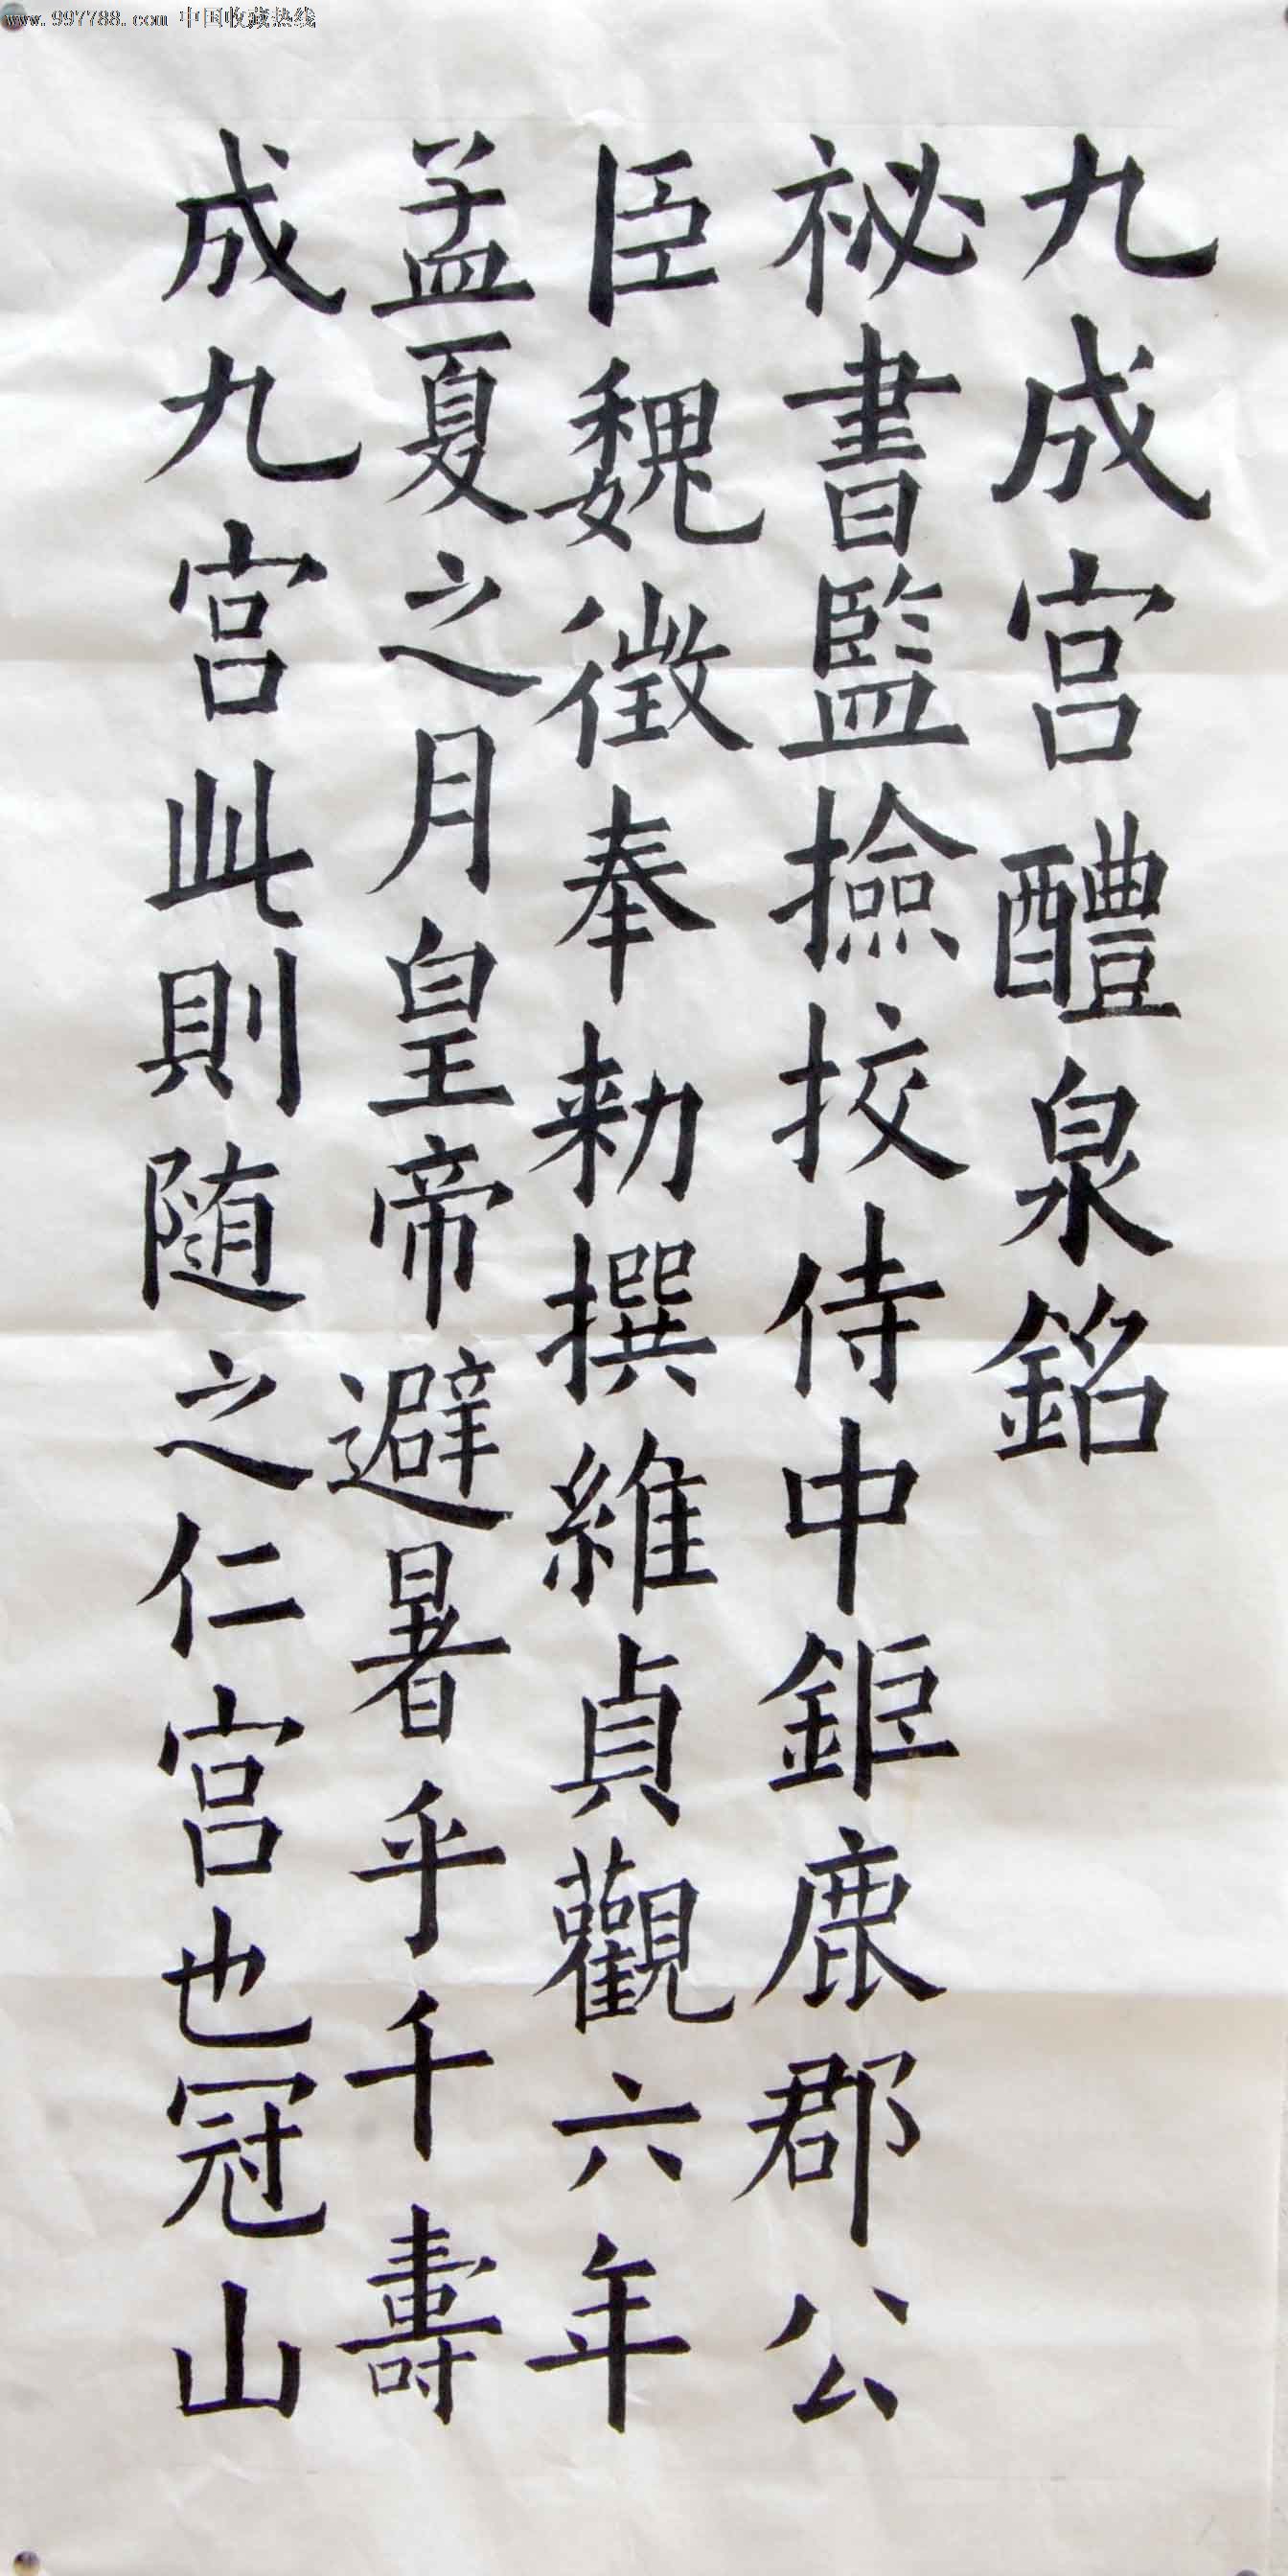 www.997788.com 中国收藏热线
九成宫醴泉銘
祕書監撿挍侍中鉅鹿郡公
臣魏徵奉勑撰維貞觀六年
孟夏之月皇帝避暑乎千壽
成九宫此則随之仁宫也冠山